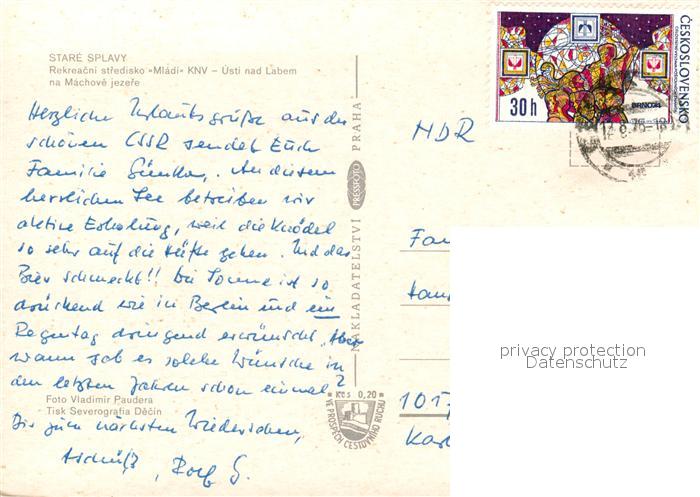 STARÉ SPLAVY
Rekreační středisko »Mládí« KNV – Ústí nad Labem
na Máchově jezeře
Herzliche Urlaubsgrüße aus der
schönen ČSSR sendet Euch
Familie. An diesem
herrlichen See betreiben wir
aktive Erholung, weil die Knödel
so sehr auf die Hüfte gehen. Und das
Bier schmeckt!! Die Sonne ist so
drückend wie in Berlin und ein
Regentag dringend erwünscht. Aber
wann gab es solche Wünsche in
den letzten Jahren schon einmal?
Foto Vladimír Paudera
Tisk Severografia Děčín
Bis zum nächsten Wiedersehen,
tschüß, Rolf G.
NAKLADATELSTVÍ PRESSFOTO PRAHA
Kčs 0,20
VE PROSPĚCH CESTOVNÍHO RUCHU
ČESKOSLOVENSKO
30h
NDR
Fam
1017
Karl
privacy protection
Datenschutz